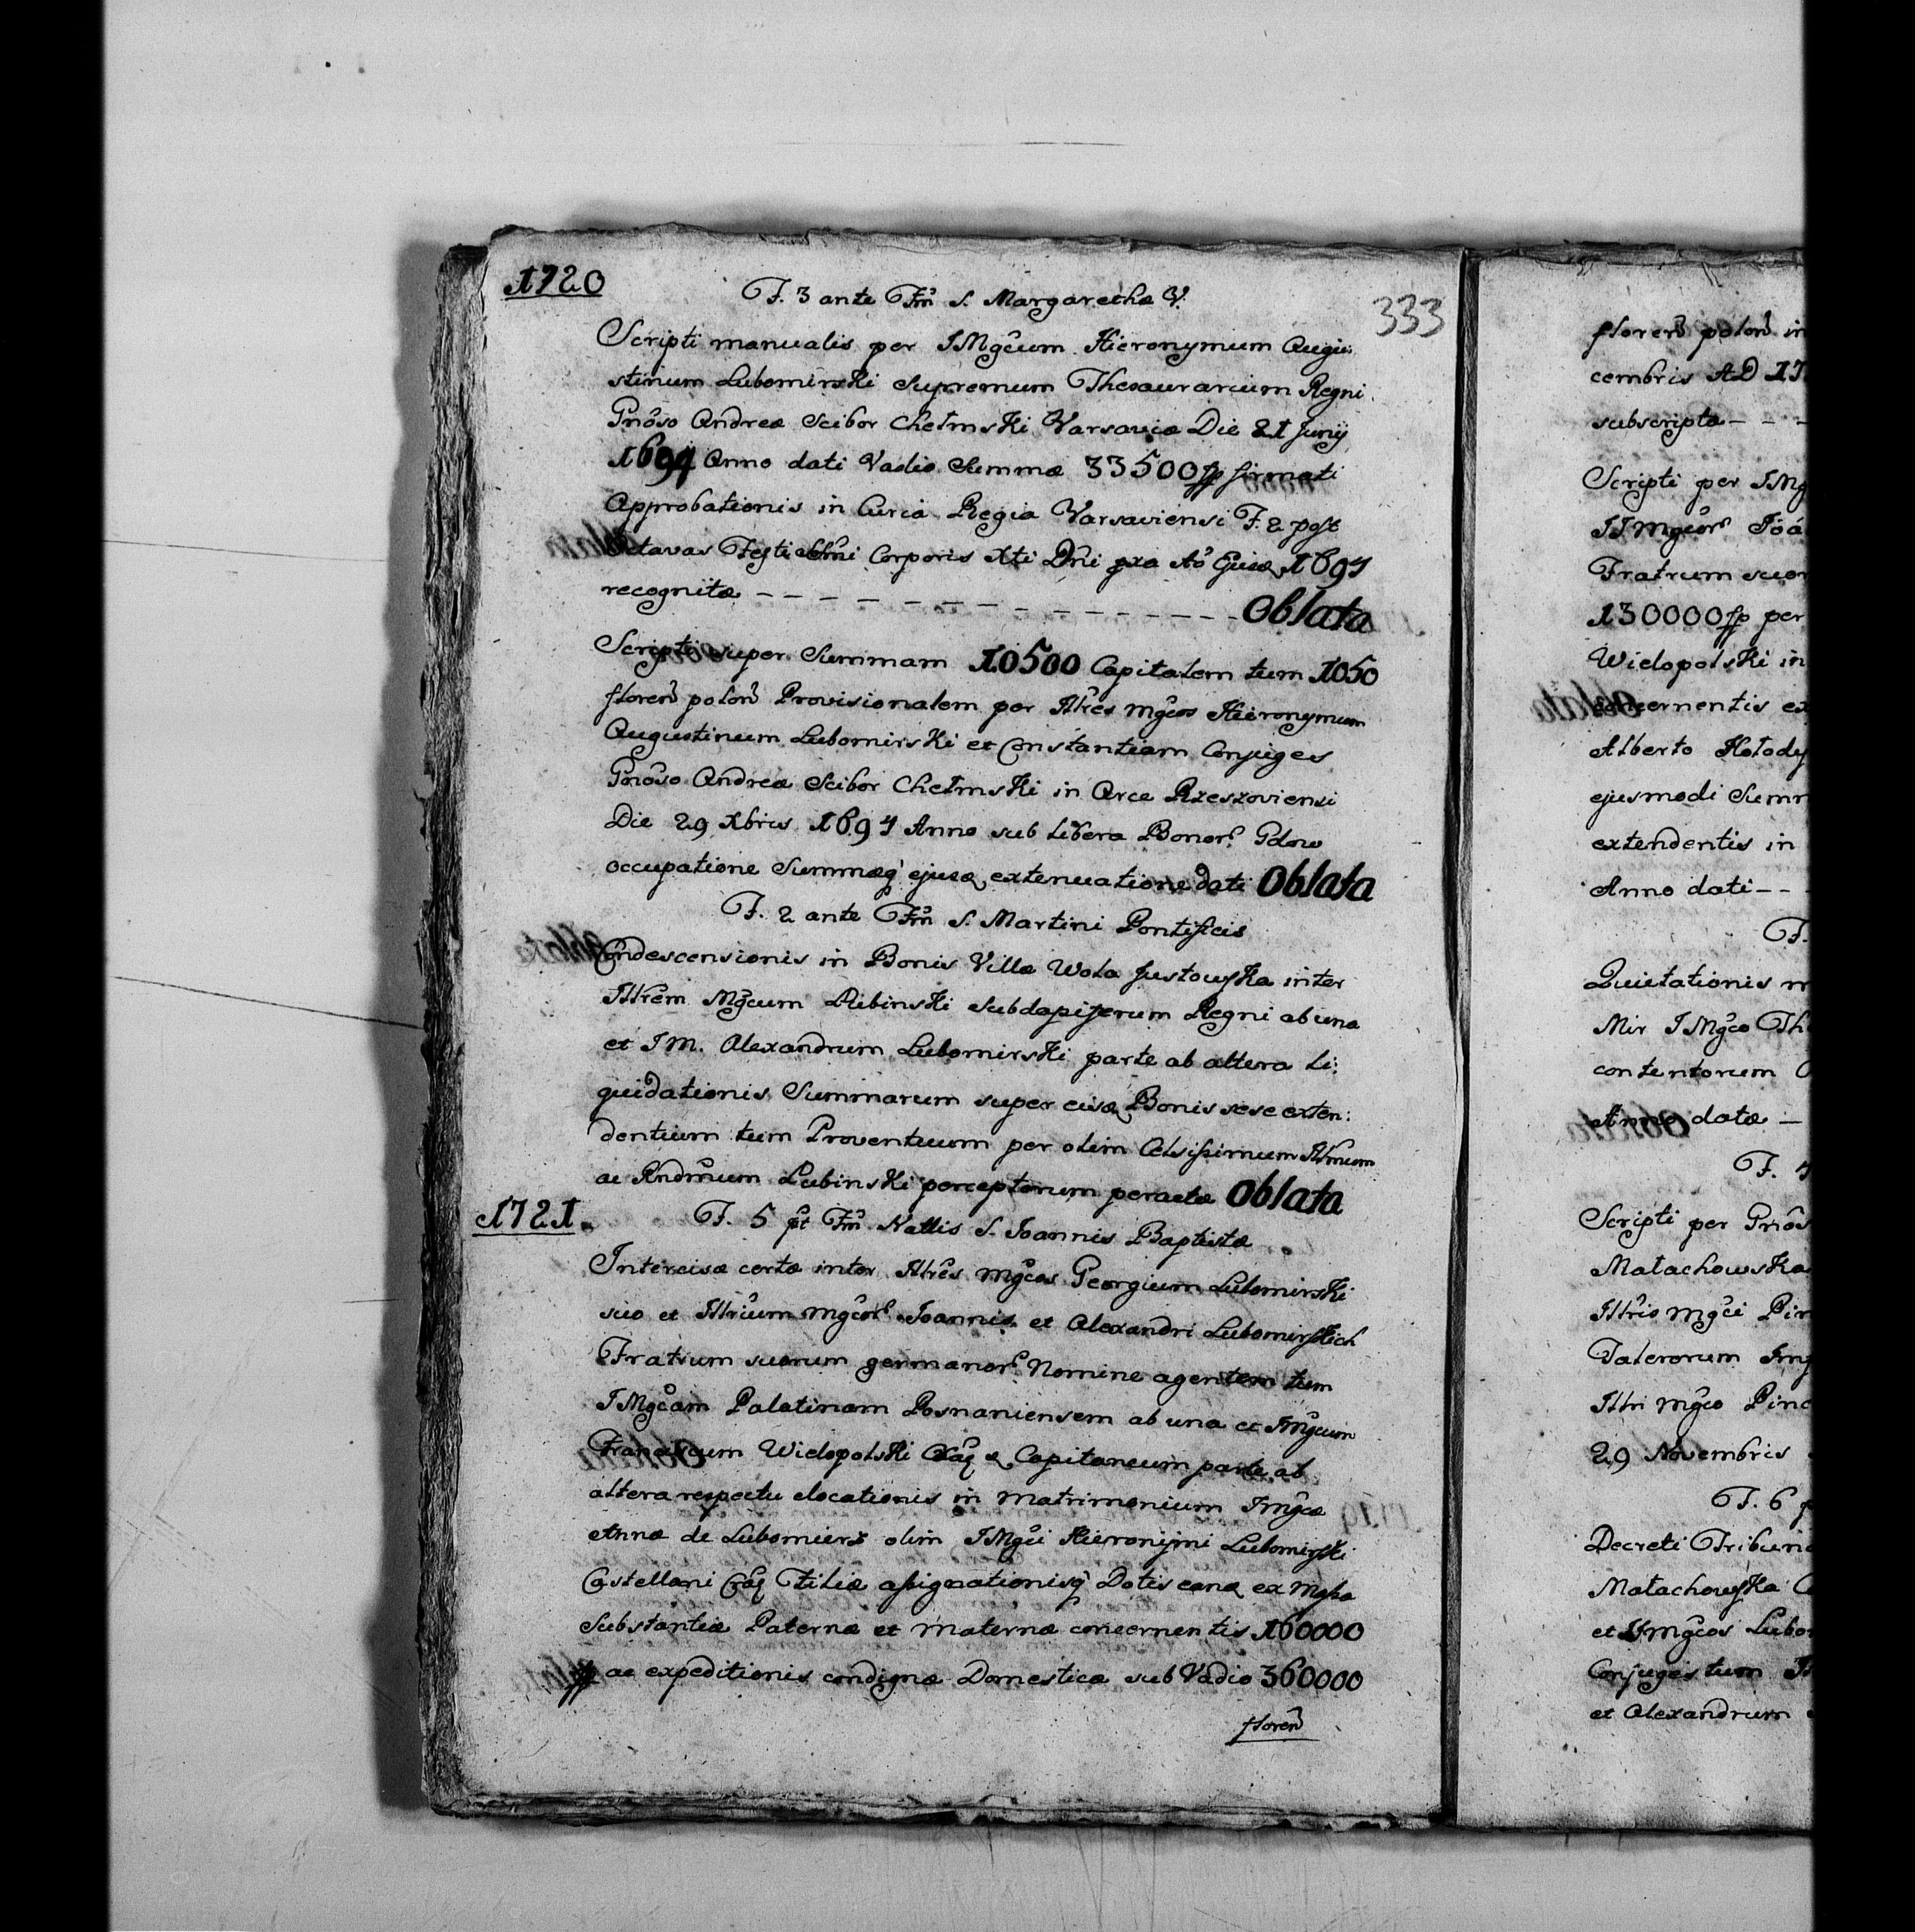 1720
F. 3 ante Fm̃ S. Margarethæ V.
333
Scripti manualis per IMgcum Hieronymum Augu:
stinum Lubomirski Supremum Thesaurarium Regni
Gnoso Andreæ Scibor Chełmski Varsaviæ Die 21 Junij
1694 Anno dati Vadio Summæ 33500 fp firmati
Approbationis in Curia Regia Varsaviensi F. 2 post
Octavas Festi Corporis Xti Dni Aõ 1694
recognitæ - - - - - - - - - - - - - - - Oblata
Scripti super Summam 10500 Capitalem tum 1050
floren̄ polon̄ Provisionalem per Illres Mgcos Hieronymum
Augustinum Lubomirski et Constantiam Conjuges
Gnoso Andreæ Scibor Chełmski in Arce Rzeszoviensi
Die 29 Xbris 1694 Anno sub libera Bonor Gdow
occupatione Summæq ejusq extenuatione dati Oblata
F. 2 ante Fm̃ S. Martini Pontificis
Condescensionis in Bonis Villæ Wola Justowska inter
Illrem Mgcum Łubinski Subdapiferum Regni ab una
et I M. Alexandrum Lubomirski parte ab altera Li:
quidationis Summarum super eisq Bonis sese exten:
dentium tum Proventuum per olim Celsissimum Illmum
ac Rndmum Łubinski perceptorum peractæ Oblata
1721.
F. 5 pt Fm̃ Nattis S. Joannis Baptistæ
Intercisæ certæ inter Illres Mgcos Georgium Lubomirski
suo et Illrium Mgcor Joannis et Alexandri Lubomirskich
Fratrum suorum germanor Nomine agentem tum
IMgcam Palatinam Posnaniensem ab una et Imgcum
Franciscum Wielopolski Capitaneum parte ab
altera respectu elocationis in Matrimonium Imgcæ
Annæ de Lubomierz olim IMgci Hieronijmi Lubomirski
Castellani Filiæ assignationisq Dotis ex Massa
Substantiæ Paternæ et maternæ concernentis 160000
fp ac expeditionis condignæ Domesticæ sub Vadio 360000
floren̄
floren̄ polon̄ in
cembris AD 17
subscripta - - -
Scripti per IMg
IImgcor Joá
Fratrum suor
130000 fp per
Wielopolski in
concernentis ex
Alberto Kołody
ejusmodi Summ
extendentis in
Anno dati - -
F.
Quietationis m
Mir IMgco Th
contentorum
Anno datæ -
F. 4
Scripti per Gnos
Małachowska
Illris Mgci Pin
Talerorum Img
Illri Mgco Pinc
29 Novembris
F. 6 p
Decreti Tribuna
Małachowska
et IImgcos Lubo
Conjuges tum
et Alexandrum